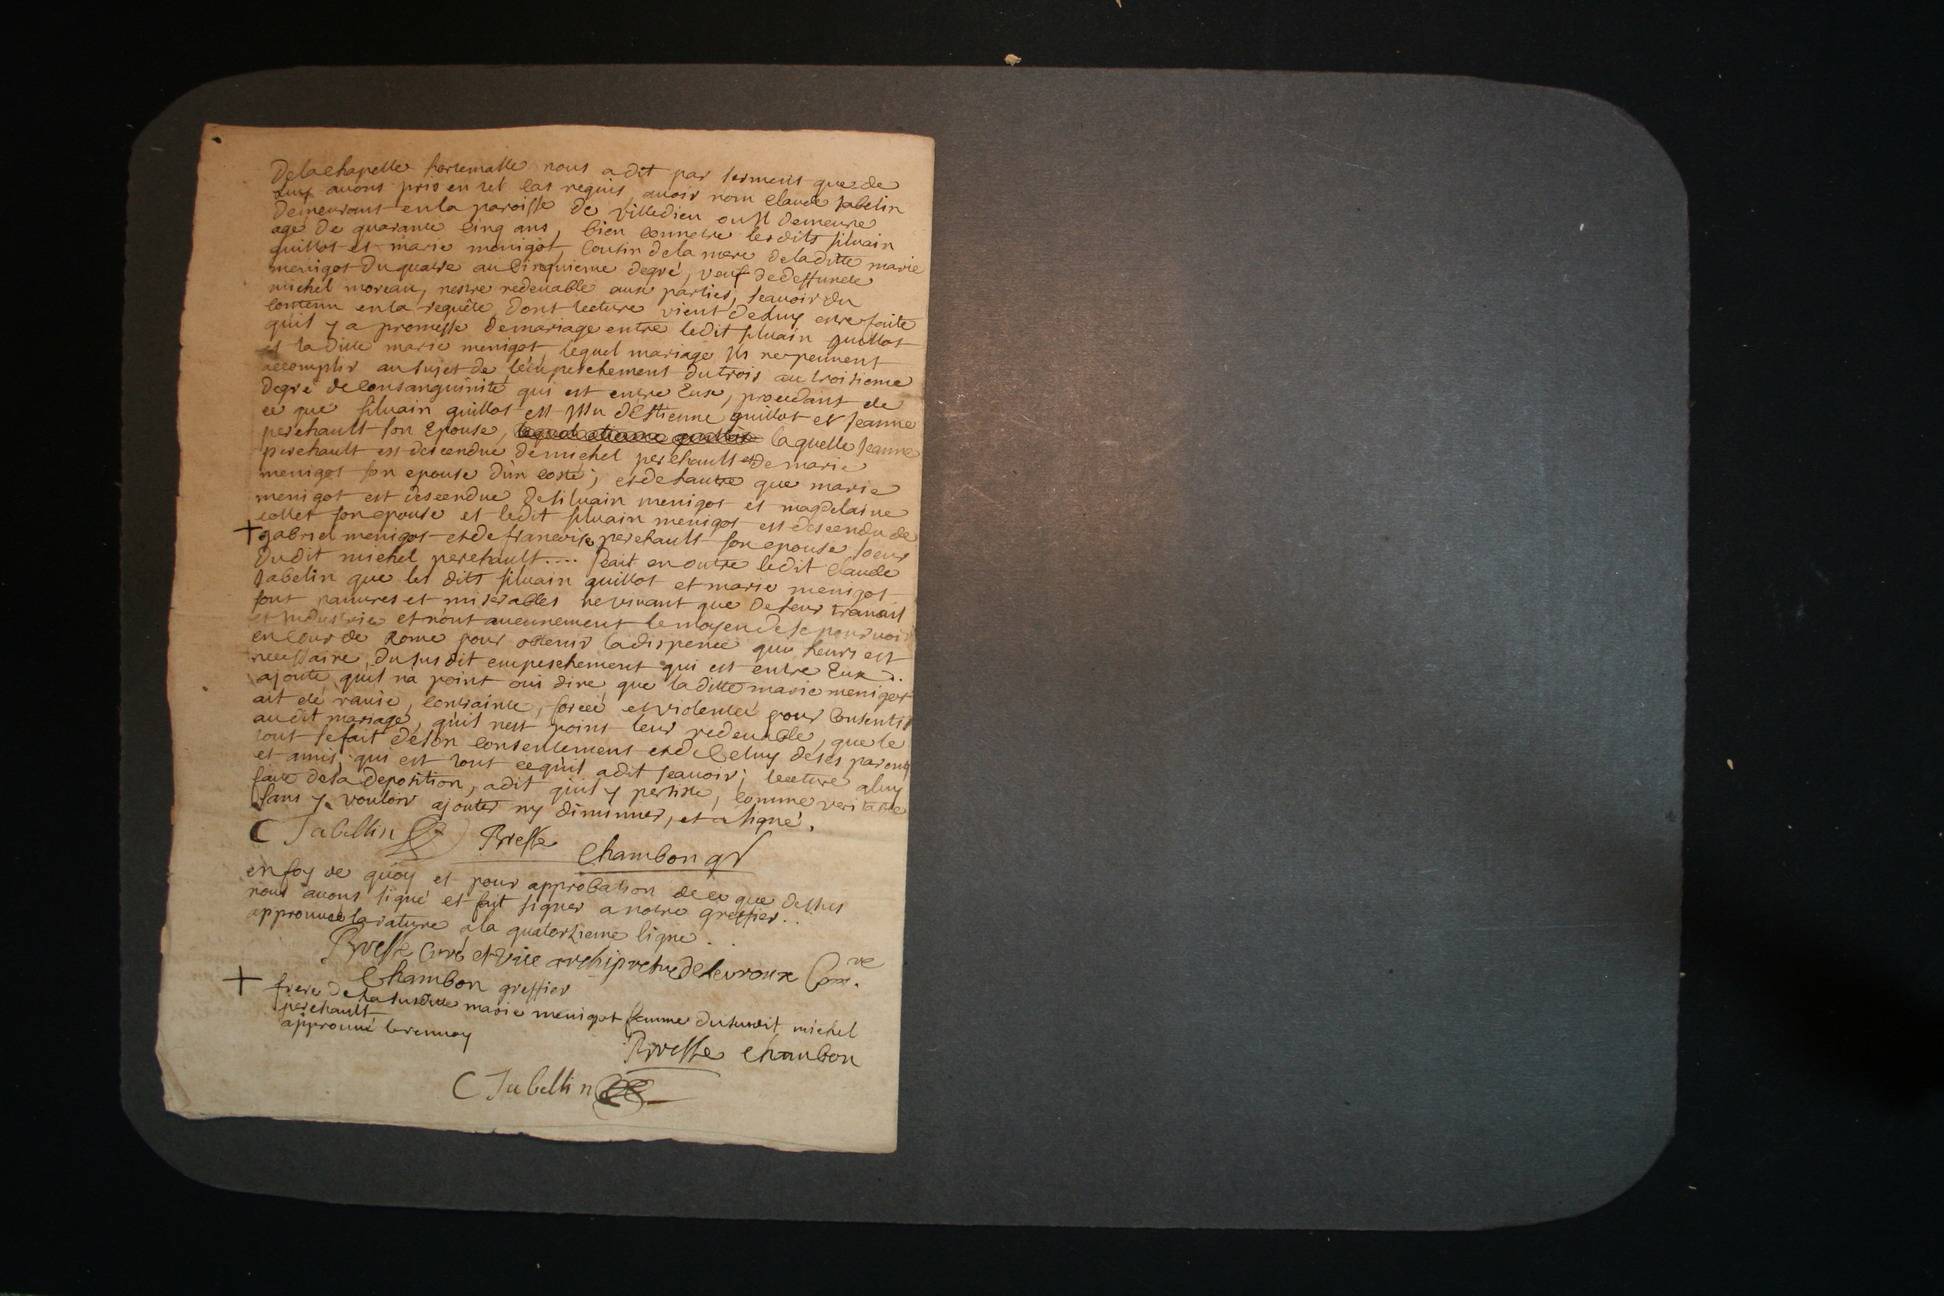 de la chapelle hortemalle nous a dit par serment que de
luy avons pris en tel cas requis avoir nom Claude Jabelin
demeurant en la paroisse de Villedieu ou Il demeure
agé de quarante cinq ans, bien connetre lesdits silvain
guillot et marie menigot, cousin de la mere de laditte marie
menigot du quatre au cinquieme degré, veuf de deffunde
michel moreau, nestre redevable aux parties, scavoir du
contenu en la requête, dont lecture vient de luy etre faite
quil y a promesse de mariage entre ledit silvain guillot
et la ditte marie menigot, lequel mariage Ils ne peuvent
accomplir au sujet de l'empeschement du trois au troisieme
degré de consanguinité qui est entre Eux, procedant de
ce que silvain guillot est Issu d'Estienne guillot et Jeanne
perchault son Epouse, laquelle Jeanne
perchault est descendue de michel perchault et de marie
menigot son epouse d'un costé; et de l'autre que marie
menigot est descendue de silvain menigot et magdelaine
collet son epouse et ledit silvain menigot est descendu de
+ gabriel menigot et de francoise perchault son epouse soeur
dudit michel perchault.... scait en outre ledit claude
Jabelin que les dits silvain guillot et marie menigot
sont pauvres et miserables ne vivant que de leur travail
et industrie et n'ont aucunement le moyen de se pourvoir
en cour de Rome pour obtenir la dispence qui leurs est
necessaire, du susdit empeschement qui est entre Eux..
ajoute quil na point oui dire que la ditte marie menigot
ait été ravie, contrainte, forcée et violentée pour consentir
audit mariage, qu'il nest point leur redevable, que le
tout se fait de son consentement et de celuy de ses parents
et amis, qui est tout ce qu'il a dit scavoir; lecture a luy
faite de sa deposition, a dit qu'il y persiste, comme veritable
sans y vouloir ajouter ny diminuer, et a signé.
C Jabellin Bresse Chambon gr
en foy de quoy et pour approbation de ce que dessus
nous avons signé et fait signer a notre greffier..
approuvée la rature a la quatorzieme ligne..
Bresse Curé et vice archiprêtre de Levroux Com.re
Chambon greffier
+ frere de la susditte marie menigot femme du susdit michel
perchault
approuvé le renvoy
Bresse Chambon
C Jabellin